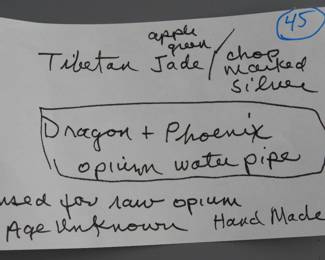 45
apple
green
Tibetan Jade / chop
marked
silver
Dragon + Phoenix
opium water pipe
used for raw opium
Age Unknown Hand Made